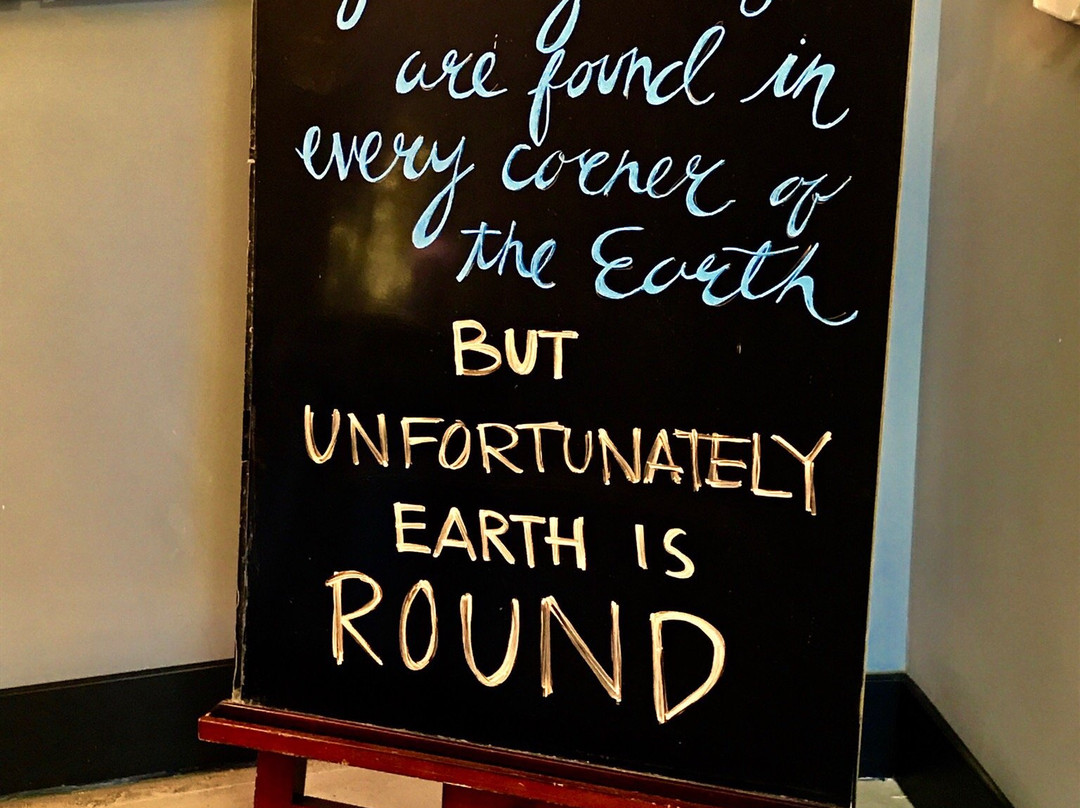 are found in
every corner of
the Earth
BUT
UNFORTUNATELY
EARTH IS
ROUND